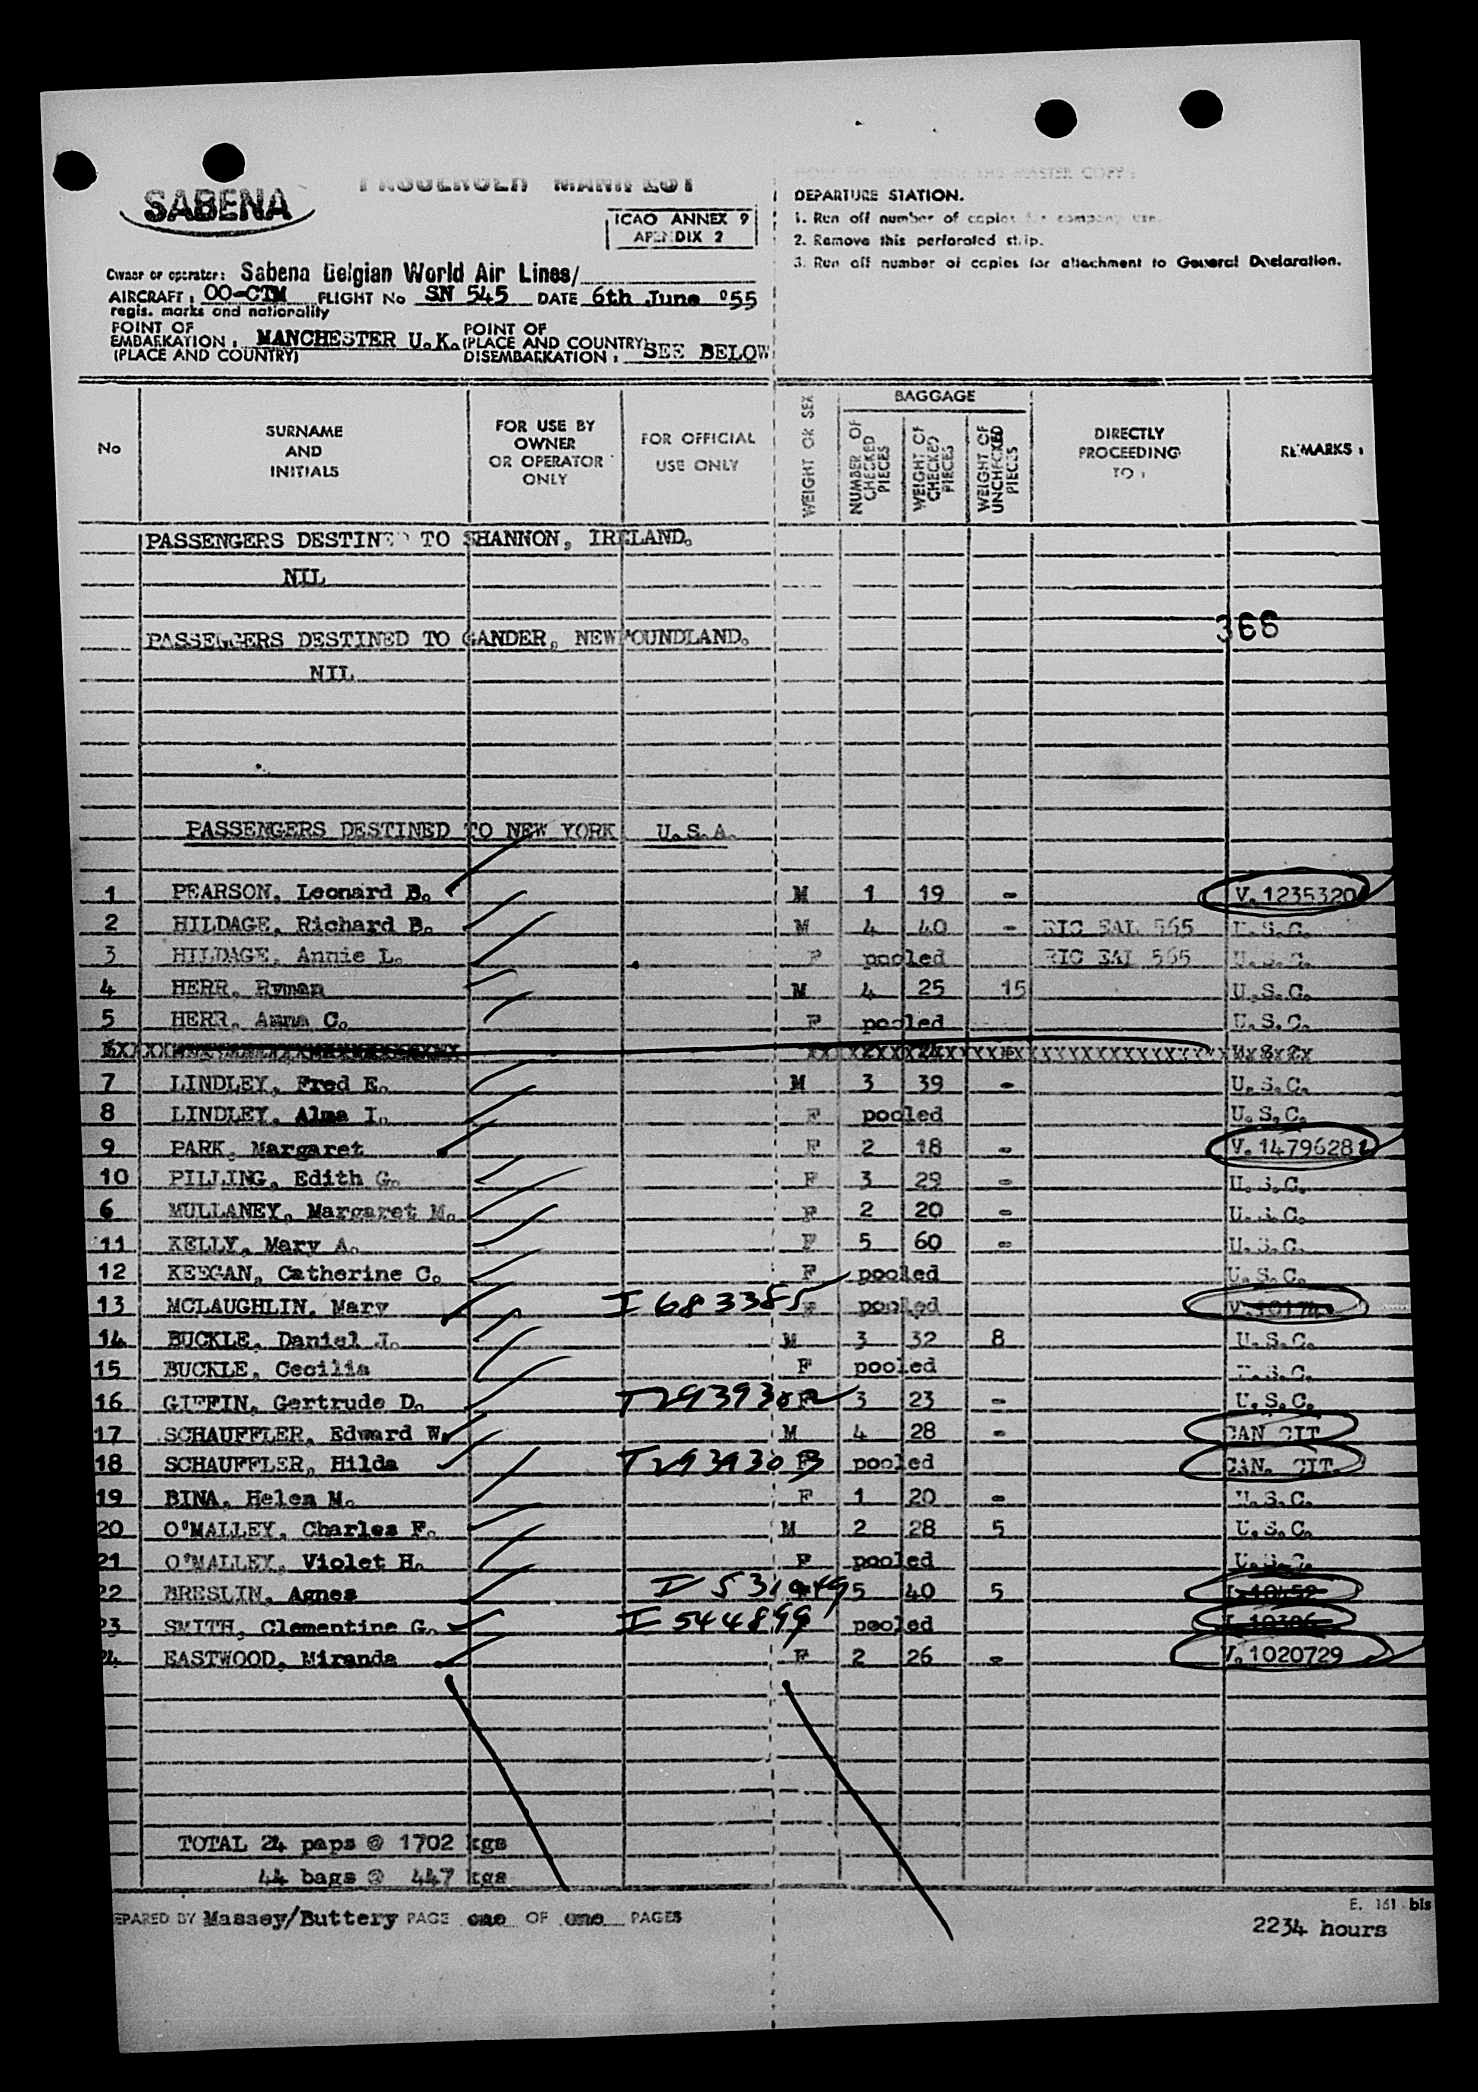 SABENA
PASSENGER MANIFEST
ICAO ANNEX 9
APENDIX 2
MASTER COPY :
DEPARTURE STATION.
1. Run off number of copies for company use.
2. Remove this perforated strip.
3. Run off number of copies for attachment to General Declaration.
Owner or operator: Sabena Belgian World Air Lines/
AIRCRAFT : OO-CTM FLIGHT No SN 545 DATE 6th June °55
regis. marks and nationality
POINT OF EMBARKATION : (PLACE AND COUNTRY) MANCHESTER U.K. POINT OF (PLACE AND COUNTRY) DISEMBARKATION : SEE BELOW
No SURNAME AND INITIALS FOR USE BY OWNER OR OPERATOR ONLY FOR OFFICIAL USE ONLY WEIGHT OR SEX BAGGAGE NUMBER OF CHECKED PIECES WEIGHT OF CHECKED PIECES WEIGHT OF UNCHECKED PIECES DIRECTLY PROCEEDING TO : REMARKS :
PASSENGERS DESTINED TO SHANNON, IRELAND.
NIL
366
PASSENGERS DESTINED TO GANDER, NEWFOUNDLAND.
NIL
PASSENGERS DESTINED TO NEW YORK U.S.A.
1 PEARSON, Leonard B. M 1 19 - V. 1235320
2 HILDAGE, Richard B. M 4 40 - RIC EAL 565 U.S.C.
3 HILDAGE, Annie L. F pooled RIC EAL 565 U.S.C.
4 HERR, Ryman M 4 25 15 U.S.C.
5 HERR, Anna C. F pooled U.S.C.
7 LINDLEY, Fred E. M 3 39 - U.S.C.
8 LINDLEY, Alma I. F pooled U.S.C.
9 PARK, Margaret F 2 18 - V. 1479628
10 PILLING, Edith G. F 3 29 - U.S.C.
6 MULLANEY, Margaret M. F 2 20 - U.S.C.
11 KELLY, Mary A. F 5 60 - U.S.C.
12 KEEGAN, Catherine C. F pooled U.S.C.
13 MCLAUGHLIN, Mary I 683385 F pooled
14 BUCKLE, Daniel J. M 3 32 8 U.S.C.
15 BUCKLE, Cecilia F pooled U.S.C.
16 GIFFIN, Gertrude D. F 3 23 - U.S.C.
17 SCHAUFFLER, Edward W. T293930 M 4 28 - CAN CIT
18 SCHAUFFLER, Hilda T293930 F pooled CAN. CIT.
19 BINA, Helen M. F 1 20 - U.S.C.
20 O'MALLEY, Charles F. M 2 28 5 U.S.C.
21 O'MALLEY, Violet H. F pooled U.S.C.
22 BRESLIN, Agnes 5 40 5 I-10452
23 SMITH, Clementine G. I 544899 pooled I-10306
24 EASTWOOD, Miranda F 2 26 - V. 1020729
TOTAL 24 paps @ 1702 kgs
44 bags @ 447 kgs
E. 161 bis
EPARED BY Massey/Buttery PAGE one OF one PAGES
2234 hours